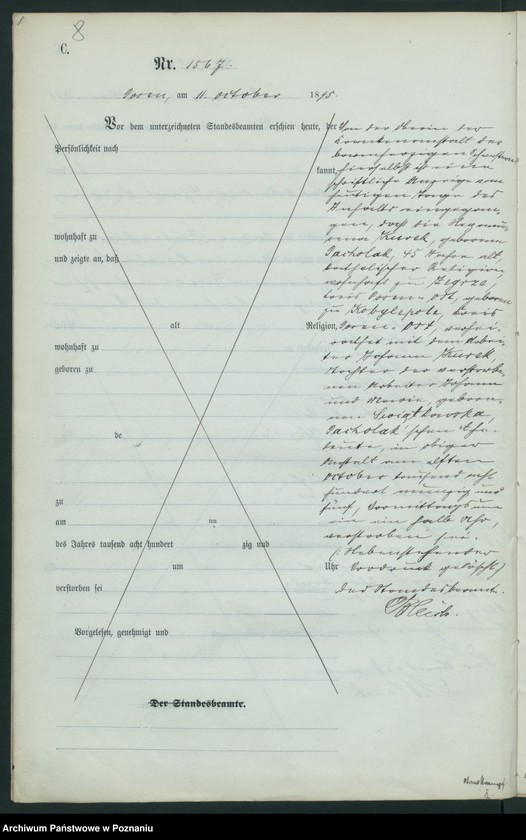 1
8
C.
Nr. 1567.
Posen, am 11. October 1895.
Vor dem unterzeichneten Standesbeamten erschien heute, der
Persönlichkeit nach
kannt,
wohnhaft zu
und zeigte an, daß
alt
Religion,
wohnhaft zu
geboren zu
de
zu
am
des Jahres tausend acht hundert zig und
um Uhr
verstorben sei
Vorgelesen, genehmigt und
Der Standesbeamte.
Von der Oberin der
Krankenanstalt der
barmherzigen Schwestern
hierselbst ist eine
schriftliche Anzeige vom
heutigen Tage des
Inhalts eingegan-
gen, daß die
Kurek, geborene
Pacholak, 45 Jahre alt,
katholischer Religion
wohnhaft zu Zegrze,
Kreis Posen-Ost, geboren
zu Kobylepole, Kreis
Posen-Ost, verhei-
rathet mit dem Arbei-
ter Johann Kurek,
Tochter der verstorbe-
nen Arbeiter Johann
und Marie, gebore-
nen Swigtkowska,
Pacholak'schen Ehe-
leute, in obiger
Anstalt am elften
October tausend acht
hundert neunzig und
fünf, Vormittags um
ein halb Uhr,
verstorben sei.
(: Nebenstehender
Vordruck gelöscht)
Der Standesbeamte.
Archiwum Państwowe w Poznaniu